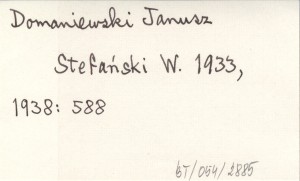 Domaniewski Janusz
Stefański W. 1933,
1938: 588
6T/054/2885